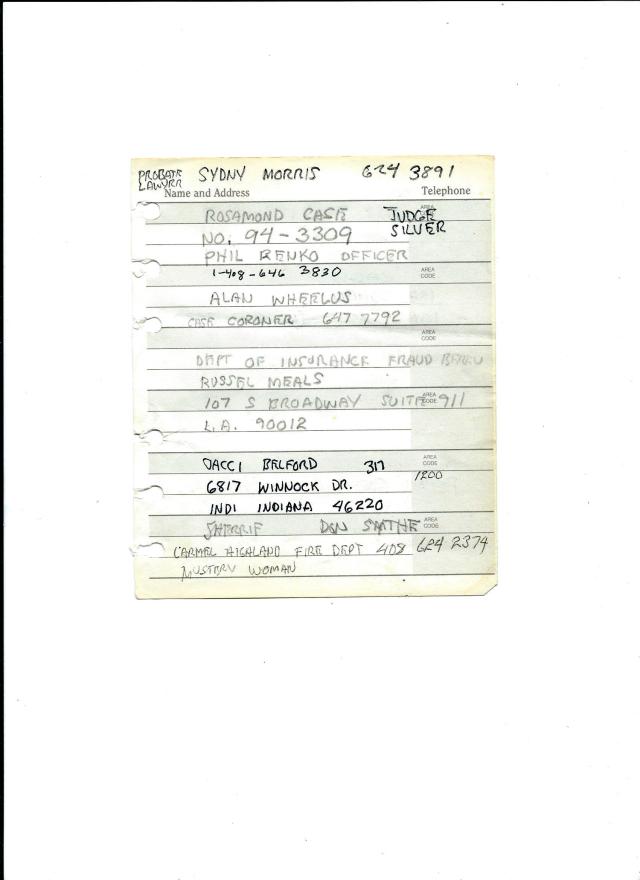 PROBATE SYDNY MORRIS 624 3891
LAWYRR
Name and Address Telephone
ROSAMOND CASE JUDGE AREA
NO. 94-3309 SILVER
PHIL RENKO OFFICER
1-408-646 3830 AREA CODE
ALAN WHEELUS
CASE CORONER 647 7792
AREA CODE
DEPT OF INSURANCE FRAUD
RUSSEL MEALS
107 S BROADWAY SUITE 911 AREA CODE
L.A. 90012
JACCI BELFORD 317 AREA CODE
6817 WINNOCK DR. 1200
INDI INDIANA 46220
SHERRIF DON SMTHE AREA CODE
CARMEL HIGHLAND FIRE DEPT 408 624 2374
MYSTERY WOMAN